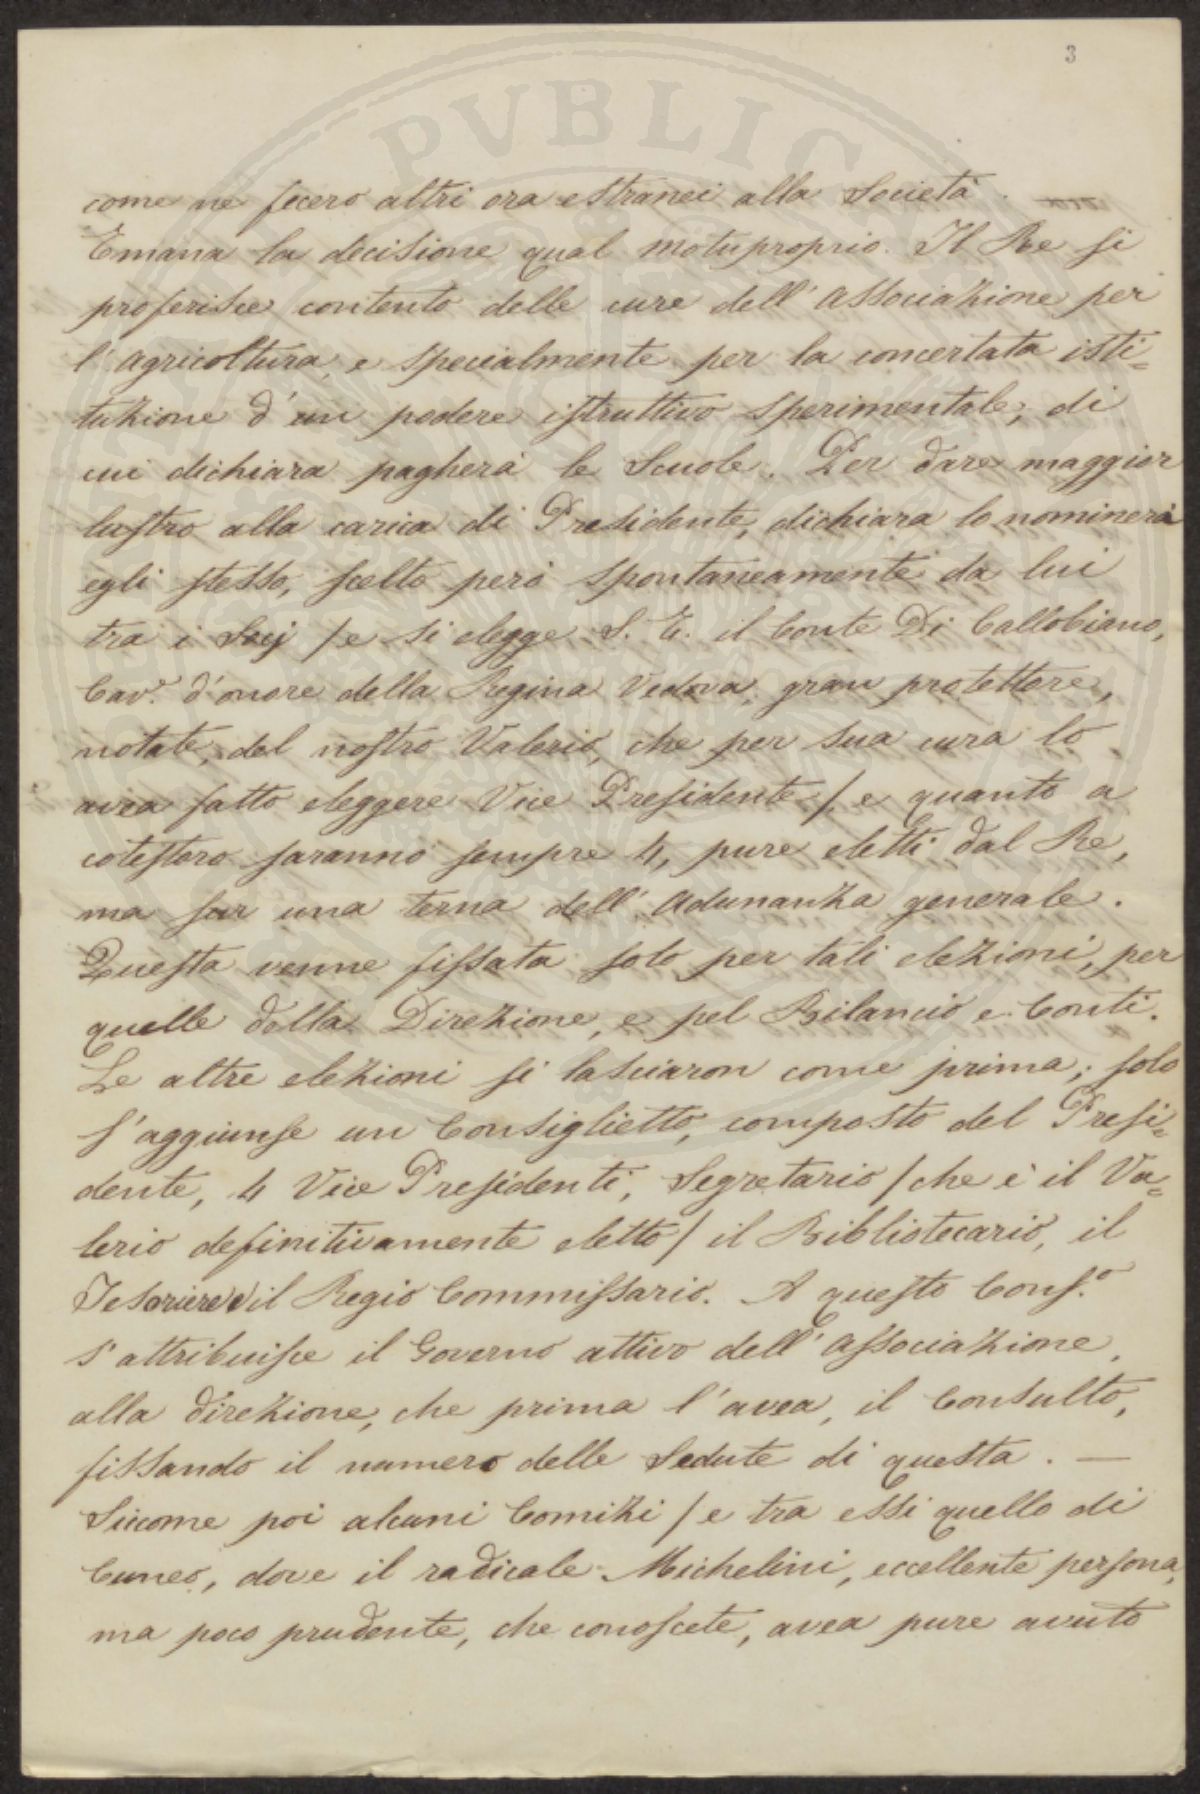 3
PVBLIC
come ne fecero altri ora estranei alla Società.
Emana la decisione qual motuproprio. Il Re si
proferisce contento delle cure dell'Associazione per
l'agricoltura, e specialmente per la concertata isti=
tuzione d'un podere istruttivo sperimentale, di
cui dichiara pagherà le Scuole. Per dare maggior
lustro alla carica di Presidente, dichiara lo nominerà
egli stesso, scelto però spontaneamente da lui
tra i Socj / e si elegge S. E. il Conte Di Collobiano,
Cav.e d'onore della Regina Vedova, gran protettore,
notate, del nostro Valerio, che per sua cura lo
avea fatto eleggere Vice Presidente / e quanto a
cotestoro saranno sempre 4, pure eletti dal Re,
ma sur una terna dell'Adunanza generale.
Questa venne fissata solo per tali elezioni, per
quelle della Direzione, e pel Bilancio e Conti.
Le altre elezioni si lasciaron come prima; solo
s'aggiunse un Consiglietto, composto del Presi=
dente, 4 Vice Presidenti, Segretario / che è il Va=
lerio definitivamente eletto / il Bibliotecario, il
Tesoriere e il Regio Commissario. A questo Cons.o
s'attribuisce il Governo attivo dell'Associazione,
alla direzione, che prima l'avea, il Consulto,
fissando il numero delle Sedute di questa. —
Siccome poi alcuni Comizi / e tra essi quello di
Cuneo, dove il radicale Michelini, eccellente persona,
ma poco prudente, che conoscete, avea pure avuto